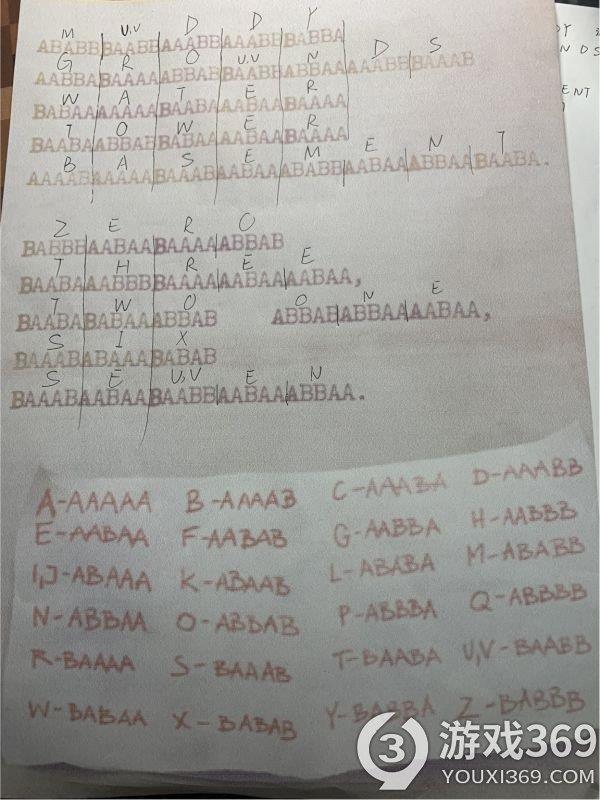 M U,V D D Y
ABABBBAABBAAABBAAABBBABBA
G R O U,V N D S
AABBABAAAAABBABBAABBABBAAAAABBBAAAB
W A T E R
BABAAAAAAABAABAAABAABAAAA
T O W E R
BAABAABBABBABAAAABAABAAAA
B A S E M E N T
AAAABAAAAABAAABAABAAABABBAABAAABBAABAABA.
Z E R O
BABBBAABAABAAAAABBAB
T H R E E
BAABAAABBBBAAAAAABAAAABAA,
T W O O N E
BAABABABAAABBAB ABBABABBAAAABAA,
S I X
BAAABABAAABABAB
S E U,V E N
BAAABAABAABAABBAABAAABBAA.
A-AAAAA B-AAAAB C-AAABA D-AAABB
E-AABAA F-AABAB G-AABBA H-AABBB
I,J-ABAAA K-ABAAB L-ABABA M-ABABB
N-ABBAA O-ABBAB P-ABBBA Q-ABBBB
R-BAAAA S-BAAAB T-BAABA U,V-BAABB
W-BABAA X-BABAB Y-BABBA Z-BABBB
DY
NDS
ENT
3 游戏369
YOUXI369.COM